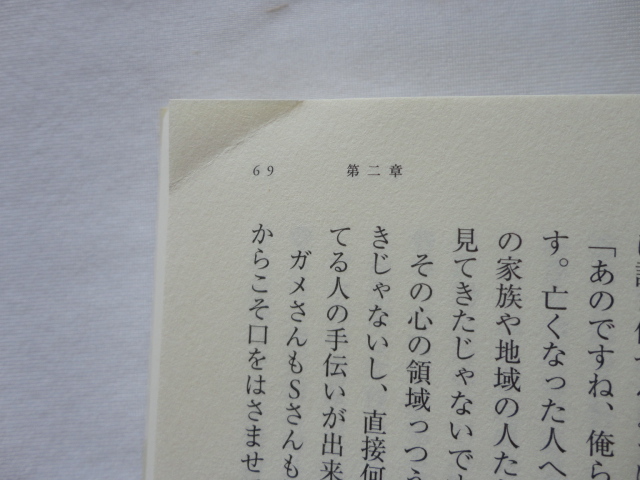 69 第二章
「あのですね、俺ら
す。亡くなった人へ
の家族や地域の人た
見てきたじゃないで
その心の領域っつう
きじゃないし、直接何
てる人の手伝いが出来
ガメさんもSさんも
からこそ口をはさませ